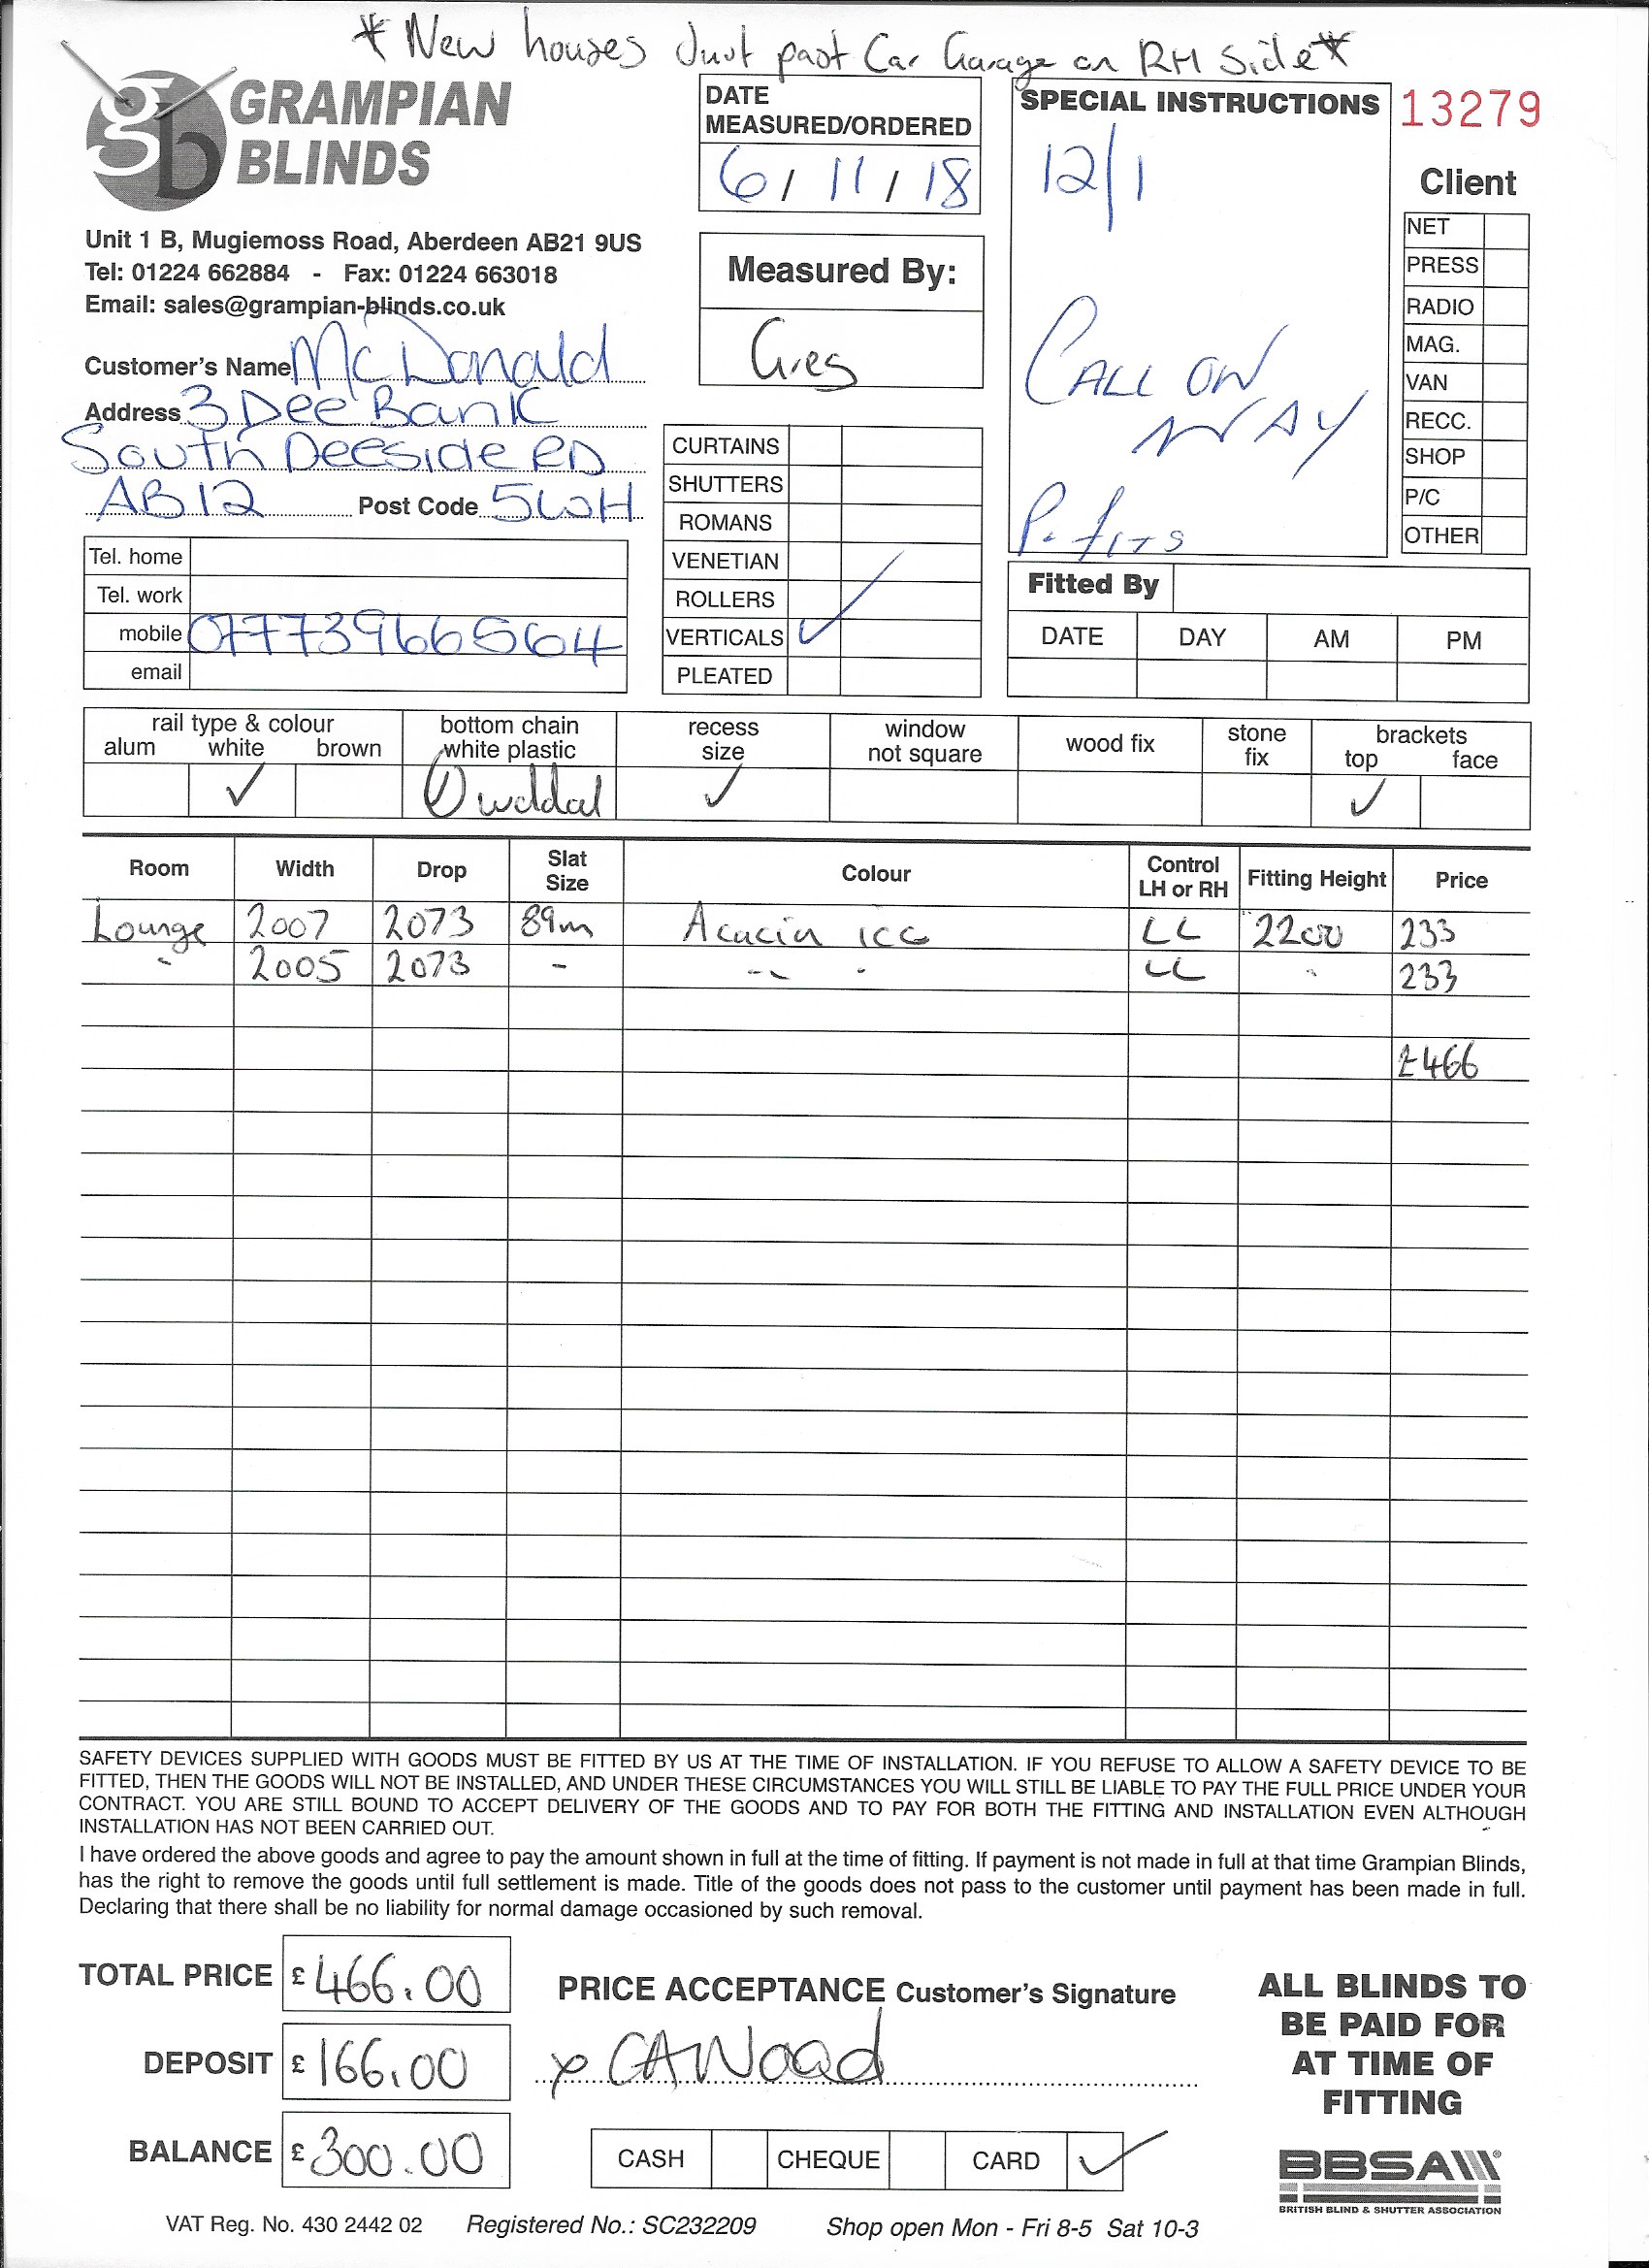 * New houses Just past Car Garage on RH Side *
GRAMPIAN
BLINDS
Unit 1 B, Mugiemoss Road, Aberdeen AB21 9US
Tel: 01224 662884 - Fax: 01224 663018
Email: sales@grampian-blinds.co.uk
Customer's Name McDonald
Address 3 Dee Bank
South Deeside RD
AB12 Post Code 5WH
Tel. home
Tel. work
mobile 07773966564
email
DATE
MEASURED/ORDERED
6/11/18
Measured By:
Greg
CURTAINS
SHUTTERS
ROMANS
VENETIAN
ROLLERS
VERTICALS ✓
PLEATED
SPECIAL INSTRUCTIONS
12/1
CALL ON
WAY
13279
Client
NET
PRESS
RADIO
MAG.
VAN
RECC.
SHOP
P/C
OTHER
Fitted By
DATE DAY AM PM
rail type & colour bottom chain recess window wood fix stone brackets
alum white brown white plastic size not square fix top face
✓ ✓ ✓
Room Width Drop Slat Size Colour Control LH or RH Fitting Height Price
Lounge 2007 2073 89m Acacia LL 2200 233
" 2005 2073 - LL " 233
£466
SAFETY DEVICES SUPPLIED WITH GOODS MUST BE FITTED BY US AT THE TIME OF INSTALLATION. IF YOU REFUSE TO ALLOW A SAFETY DEVICE TO BE
FITTED, THEN THE GOODS WILL NOT BE INSTALLED, AND UNDER THESE CIRCUMSTANCES YOU WILL STILL BE LIABLE TO PAY THE FULL PRICE UNDER YOUR
CONTRACT. YOU ARE STILL BOUND TO ACCEPT DELIVERY OF THE GOODS AND TO PAY FOR BOTH THE FITTING AND INSTALLATION EVEN ALTHOUGH
INSTALLATION HAS NOT BEEN CARRIED OUT.
I have ordered the above goods and agree to pay the amount shown in full at the time of fitting. If payment is not made in full at that time Grampian Blinds,
has the right to remove the goods until full settlement is made. Title of the goods does not pass to the customer until payment has been made in full.
Declaring that there shall be no liability for normal damage occasioned by such removal.
TOTAL PRICE £ 466.00
DEPOSIT £ 166.00
BALANCE £ 300.00
PRICE ACCEPTANCE Customer's Signature
x CAWood
CASH CHEQUE CARD ✓
ALL BLINDS TO
BE PAID FOR
AT TIME OF
FITTING
BBSA
BRITISH BLIND & SHUTTER ASSOCIATION
VAT Reg. No. 430 2442 02 Registered No.: SC232209 Shop open Mon - Fri 8-5 Sat 10-3